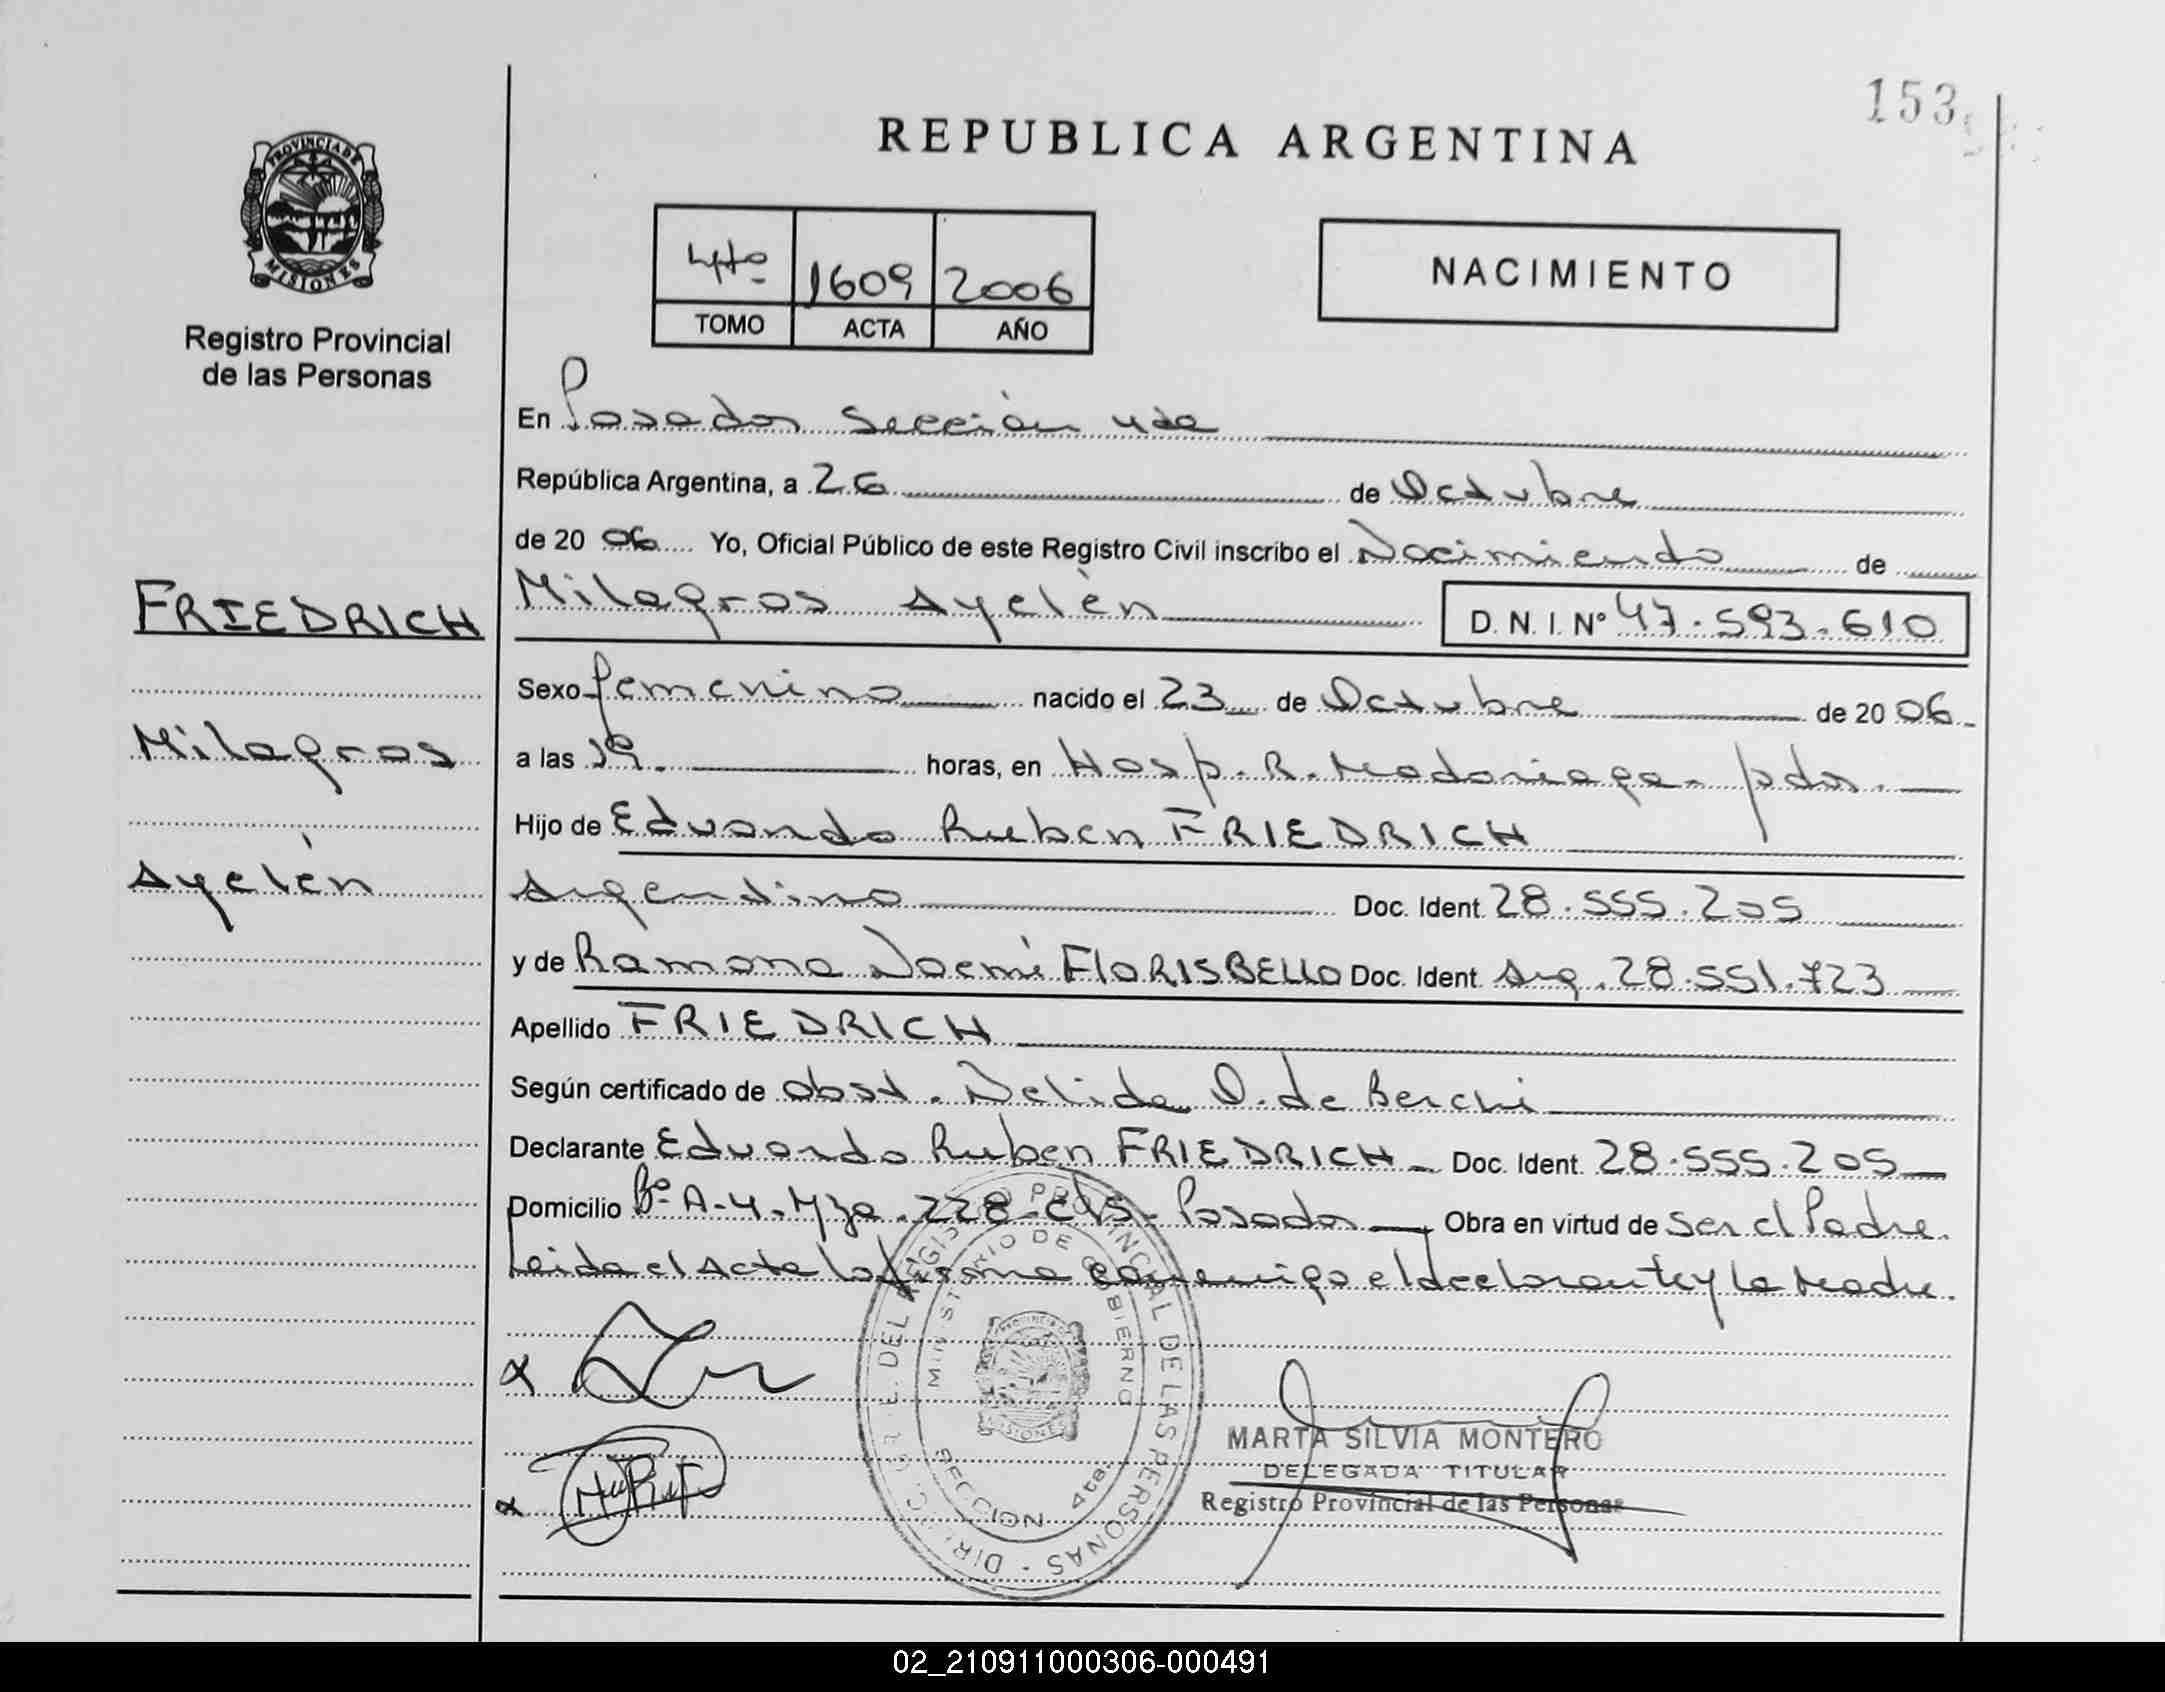 153
REPUBLICA ARGENTINA
PROVINCIA DE
MISIONES
Registro Provincial
de las Personas
4to 1609 2006
TOMO ACTA AÑO
NACIMIENTO
En Posadas Sección 4ta
República Argentina, a 26 de Octubre
de 20 06 Yo, Oficial Público de este Registro Civil inscribo el Nacimiento de
Milagros Ayelén D. N. I. Nº 47.593.610
FRIEDRICH
Milagros
Ayelén
Sexo femenino nacido el 23 de Octubre de 20 06
a las 19 horas, en Hosp. R. Madariaga - pdas.
Hijo de Eduardo Ruben FRIEDRICH
Argentino Doc. Ident. 28.555.205
y de Ramona Noemí FLORISBELLO Doc. Ident. Arg. 28.551.723
Apellido FRIEDRICH
Según certificado de obst. Nelida O. de Berchi
Declarante Eduardo Ruben FRIEDRICH Doc. Ident. 28.555.205
Domicilio Bº A-4. Mza. 228 Posadas Obra en virtud de ser el Padre.
Leida el Acta la firma conmigo el declarante y la Madre.
DEL REGISTRO PROVINCIAL DE LAS PERSONAS
MINISTERIO DE GOBIERNO
PROVINCIA DE
MISIONES
SECCION 4ta.
MARTA SILVIA MONTERO
DELEGADA TITULAR
Registro Provincial de las Personas
02_210911000306-000491